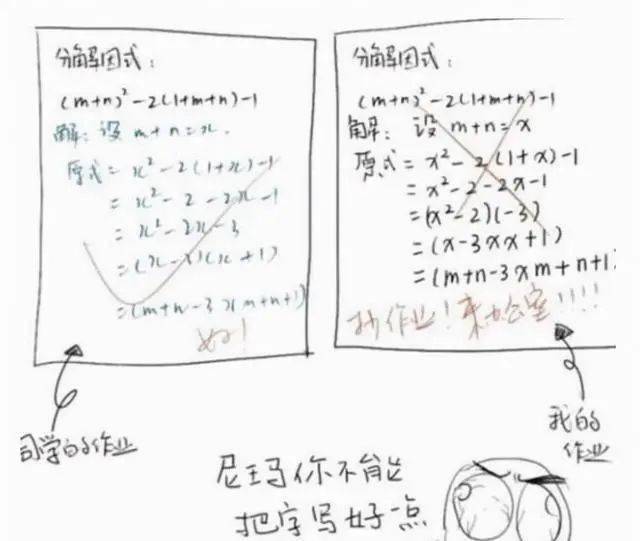 分解因式：
(m+n)²-2(1+m+n)-1
解：设 m+n=x.
原式=x²-2(1+x)-1
=x²-2-2x-1
=x²-2x-3
=(x-3)(x+1)
=(m+n-3)(m+n+1)
好！
同学的作业
分解因式：
(m+n)²-2(1+m+n)-1
解：设 m+n=x
原式=x²-2(1+x)-1
=x²-2-2x-1
=(x²-2)(-3)
=(x-3xx+1)
=(m+n-3xm+n+1)
抄作业！来办公室！！！！
我的
作业
尼玛你不能
把字写好一点